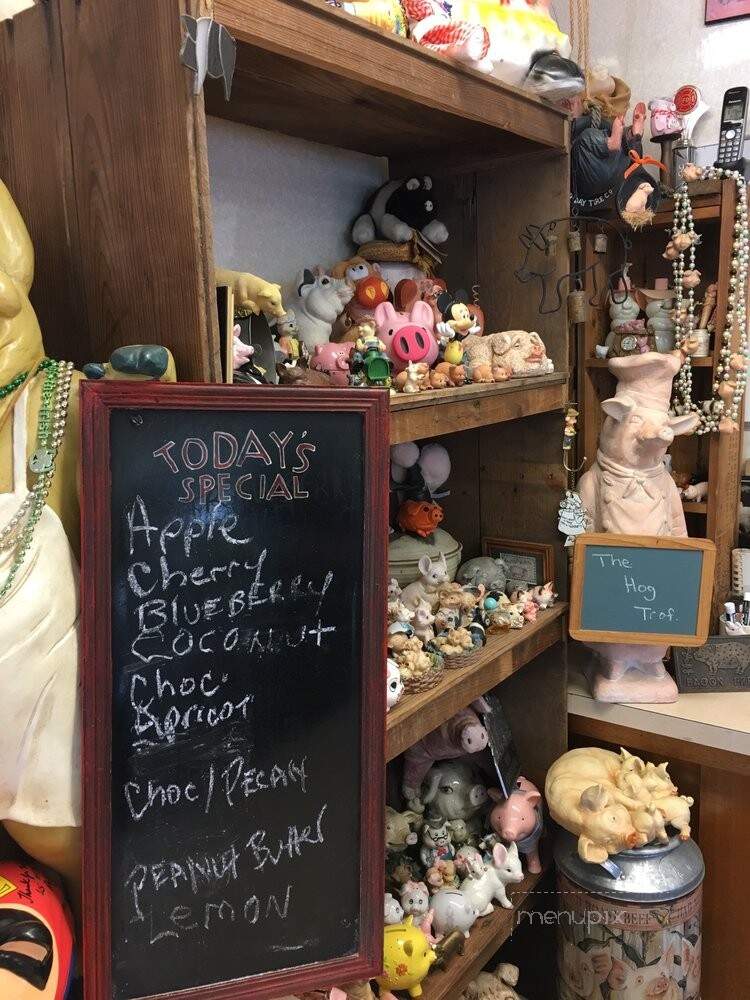 TODAY'S
SPECIAL
Apple
Cherry
BLUEBERRY
COCONUT
Choc.
Apricot
Choc/PECAN
PEANUT Butter
LEMON
DAY TIRE CO
The
Hog
Trof.
BEEF
menupix